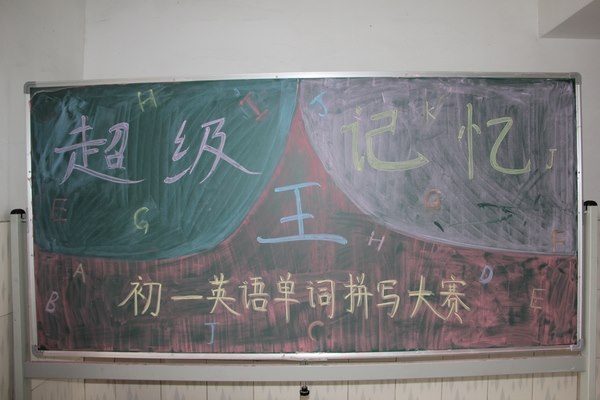 超级 记忆
王
初一英语单词拼写大赛
H I J K J
E G G E
H
A D
B E
J C